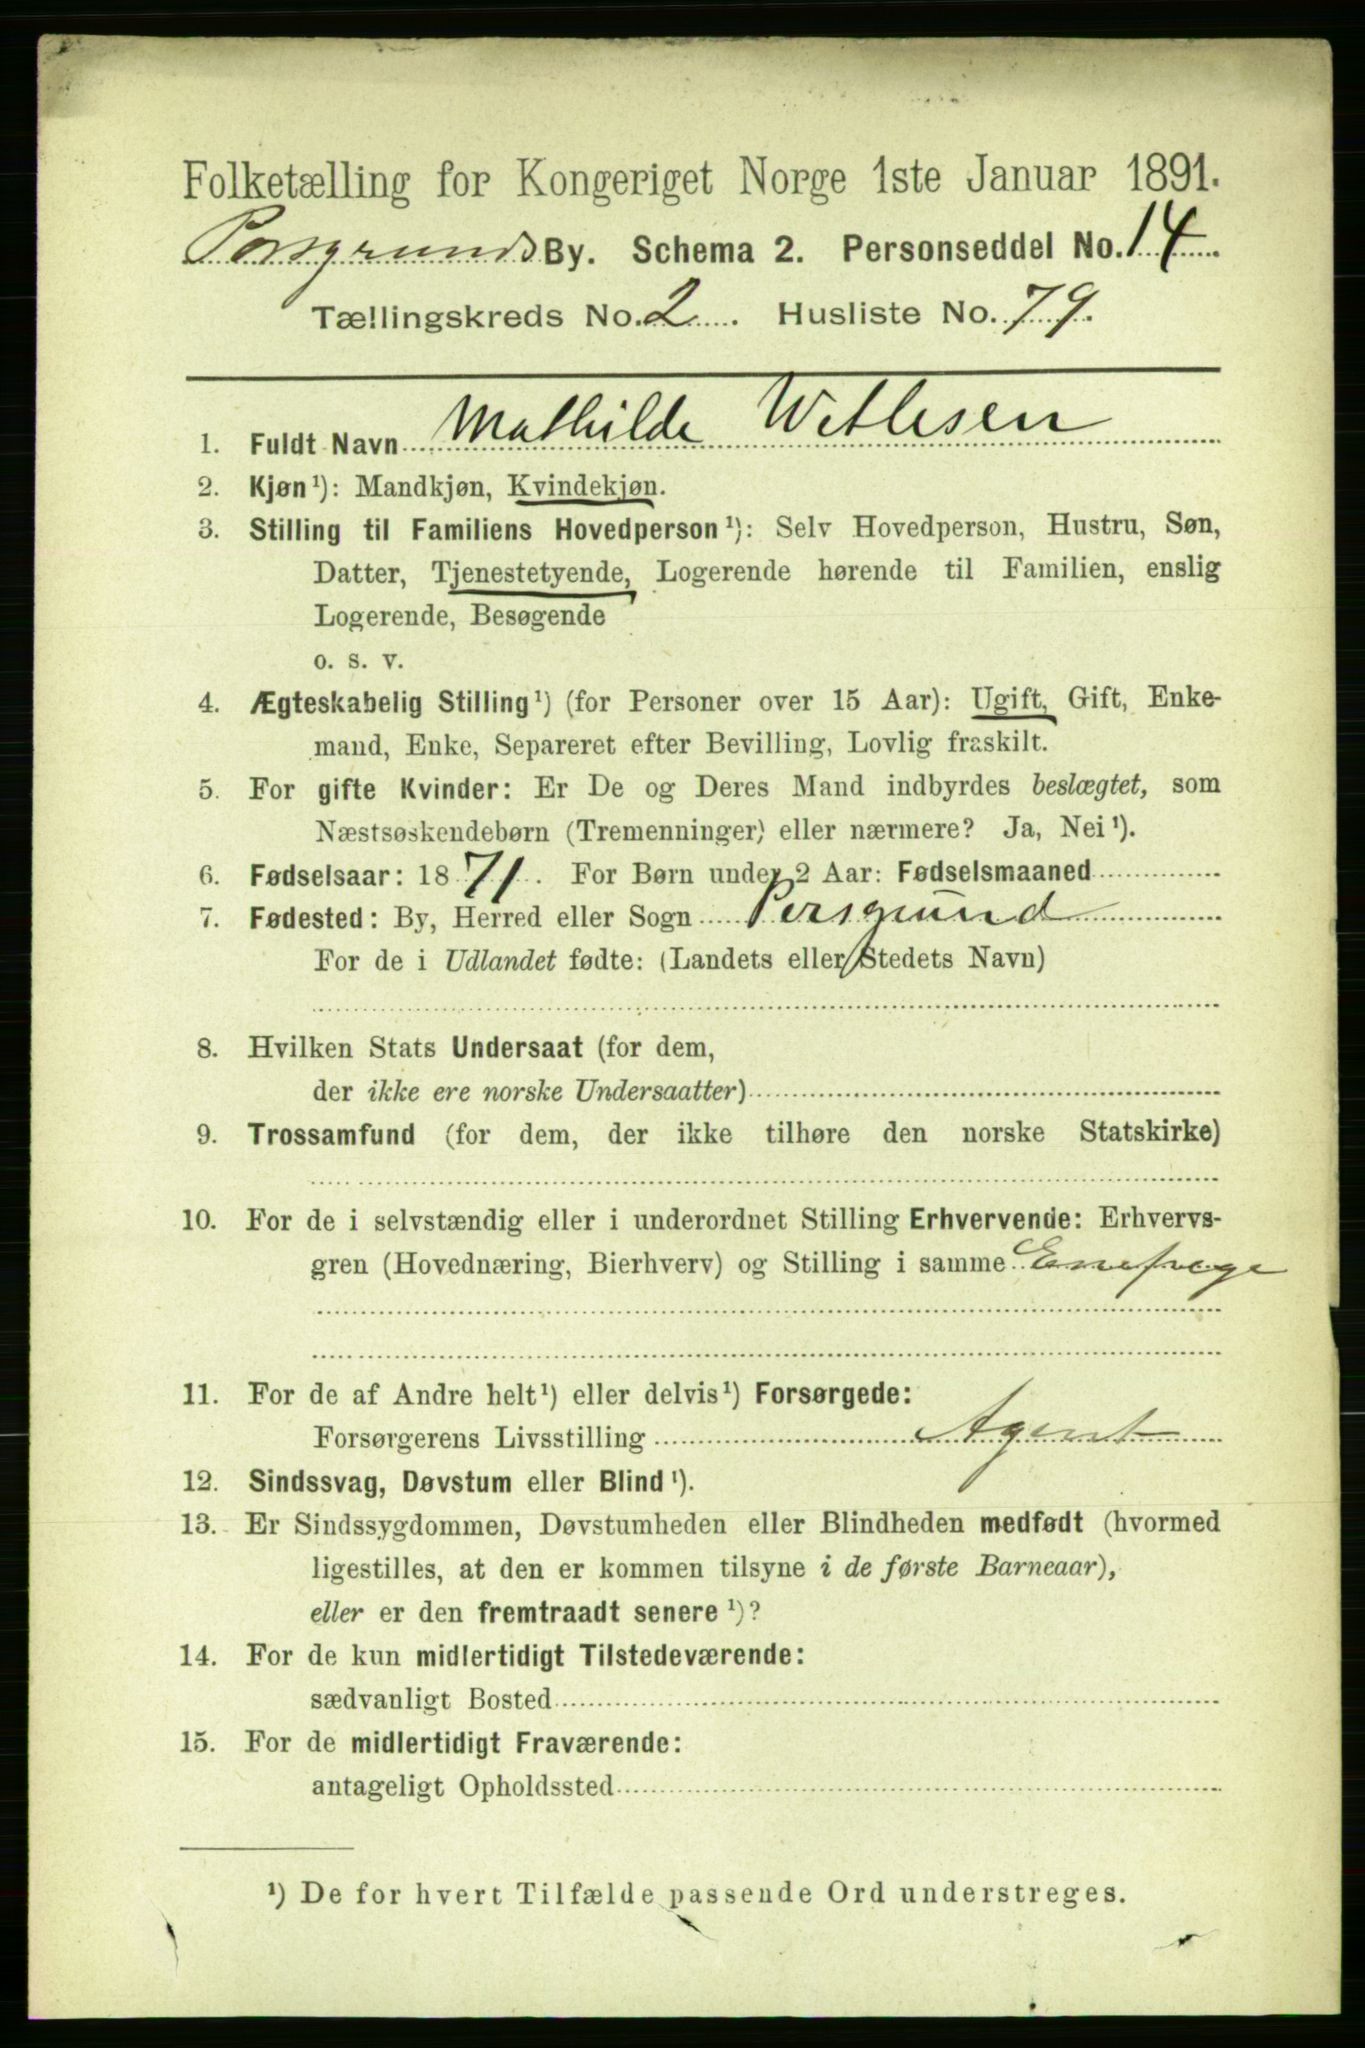 Folketælling for Kongeriget Norge 1ste Januar 1891.
Porsgrunds By. Schema 2. Personseddel No. 14
Tællingskreds No. 2. Husliste No. 79.
1. Fuldt Navn Mathilde Wetlesen
2. Kjøn¹): Mandkjøn, Kvindekjøn.
3. Stilling til Familiens Hovedperson¹): Selv Hovedperson, Hustru, Søn,
Datter, Tjenestetyende, Logerende hørende til Familien, enslig
Logerende, Besøgende
o. s. v.
4. Ægteskabelig Stilling¹) (for Personer over 15 Aar): Ugift, Gift, Enke-
mand, Enke, Separeret efter Bevilling, Lovlig fraskilt.
5. For gifte Kvinder: Er De og Deres Mand indbyrdes beslægtet, som
Næstsøskendebørn (Tremenninger) eller nærmere? Ja, Nei¹).
6. Fødselsaar: 1871. For Børn under 2 Aar: Fødselsmaaned
7. Fødested: By, Herred eller Sogn Porsgrund
For de i Udlandet fødte: (Landets eller Stedets Navn)
8. Hvilken Stats Undersaat (for dem,
der ikke ere norske Undersaatter)
9. Trossamfund (for dem, der ikke tilhøre den norske Statskirke)
10. For de i selvstændig eller i underordnet Stilling Erhvervende: Erhvervs-
gren (Hovednæring, Bierhverv) og Stilling i samme Enepige
11. For de af Andre helt¹) eller delvis¹) Forsørgede:
Forsørgerens Livsstilling Agent
12. Sindssvag, Døvstum eller Blind¹).
13. Er Sindssygdommen, Døvstumheden eller Blindheden medfødt (hvormed
ligestilles, at den er kommen tilsyne i de første Barneaar),
eller er den fremtraadt senere¹)?
14. For de kun midlertidigt Tilstedeværende:
sædvanligt Bosted
15. For de midlertidigt Fraværende:
antageligt Opholdssted
¹) De for hvert Tilfælde passende Ord understreges.